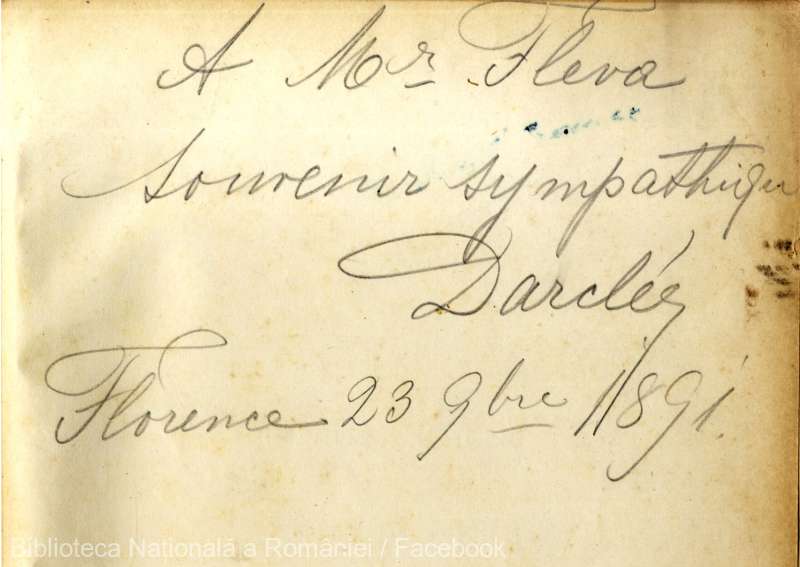 A Mr Fleva
Souvenir sympathique
Darclée
Florence 23 9bre 1891.
Biblioteca Națională a României / Facebook